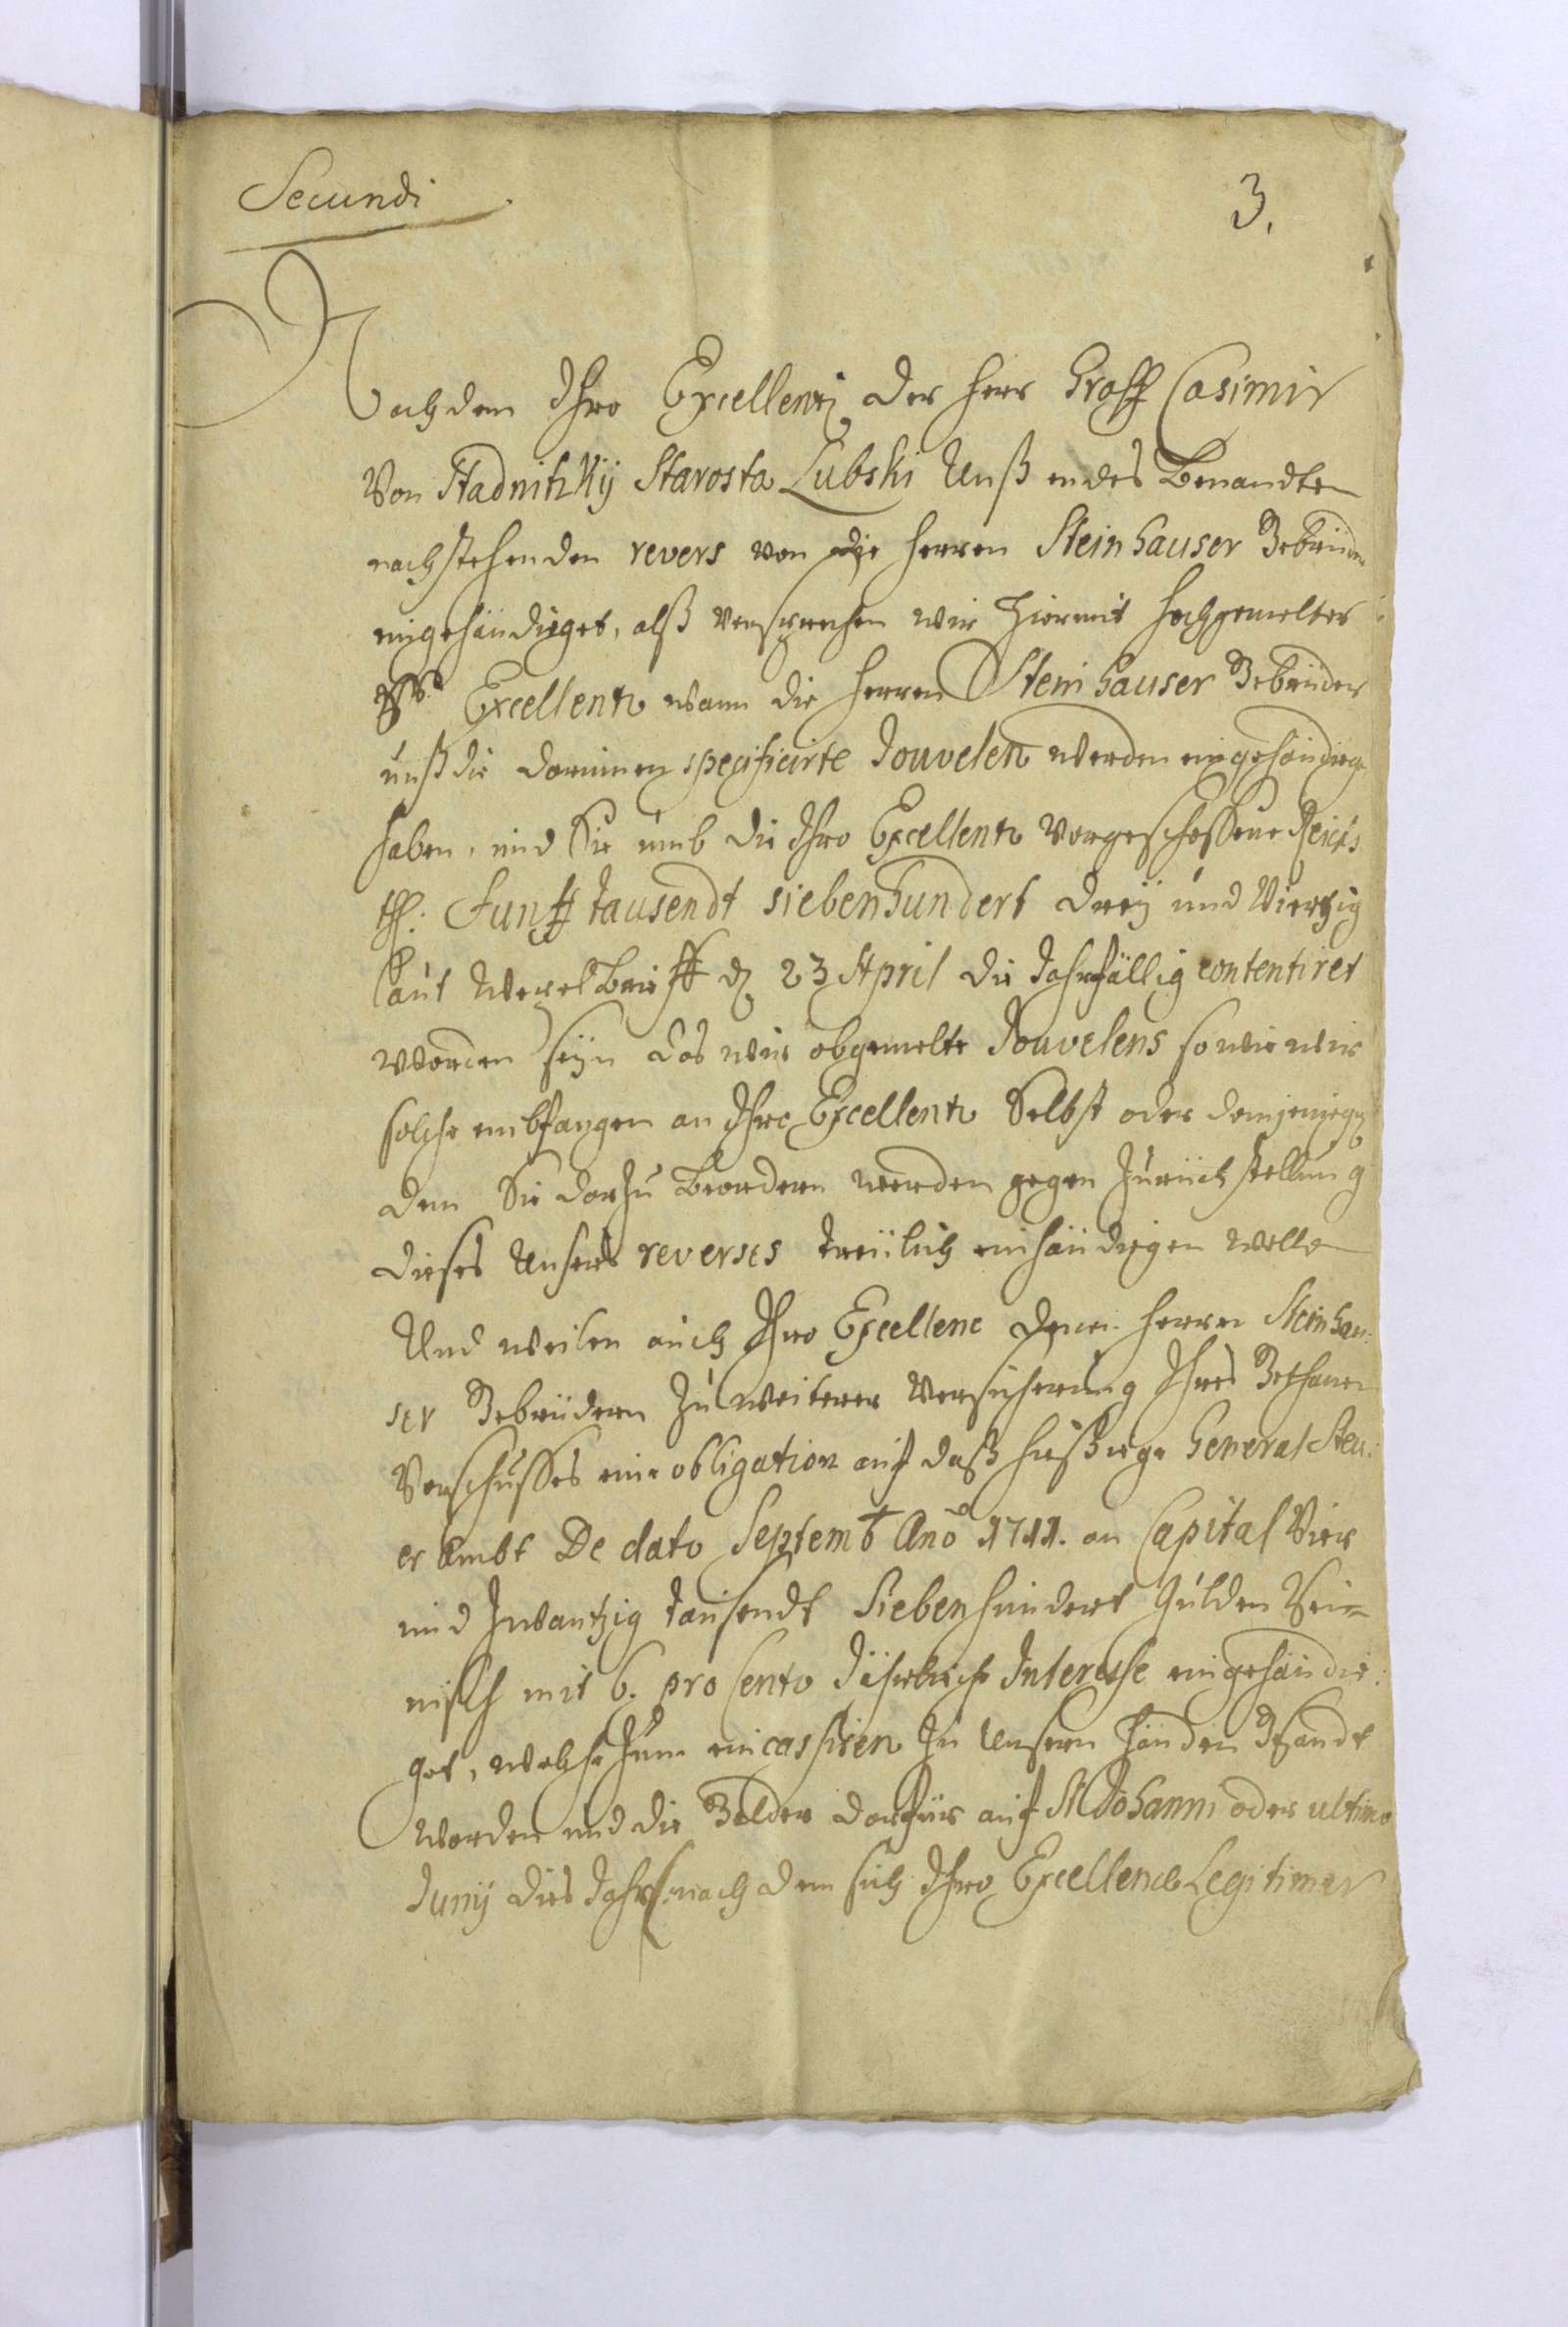 Secundi
3.
Nachdem Ihro Excellentz der Herr Graff Casimir
Von Stadnitzkÿ Starosta Lubski Unß endes Benandten
nachstehenden revers von die Herren Steinhauser Gebrüder
eingehändiget, alß versprechen wir hiermit hochgemelter
Excellentz wann die Herren Steinhauser Gebrüder
unß die darinnen specificirte Jouvelen werden eingehändiget
haben, und Sie umb die Ihro Excellentz Vorgeschossene Reichs
thl. Funff tausendt siebenhundert dreÿ und Viertzig
laut WexelBrieff d 23 April die Jahr fällig contentiret
worden seÿn das wir obgemelte Jouvelens so wie wir
solche embfangen an Ihro Excellentz Selbst oder demjenigen
dem Sie darzu Beordern werden gegen Zurückstellung
dieses Unsers reverses treulich einhändigen wollen
Und weilen auch Ihro Excellenc denen Herren Steinhau:
ser Gebrüdern zu weiterer Versicherung Ihres Gethanen
Vorschusses eine obligation auf daß hießige General Steu:
er Ambt De dato Septemb Anno 1711. an Capital Vier
und Zwantzig tausendt Siebenhundert Gulden Rei=
nisch mit 6. pro Cento Jährliche Interesse eingehändi:
get, welche zum incassiren zu Unsern Händen Gesandt
worden und die Gelder darfür auf St Johanni oder ultimo
Junÿ dies Jahrs nachdem sich Ihro Excellence Legitimer